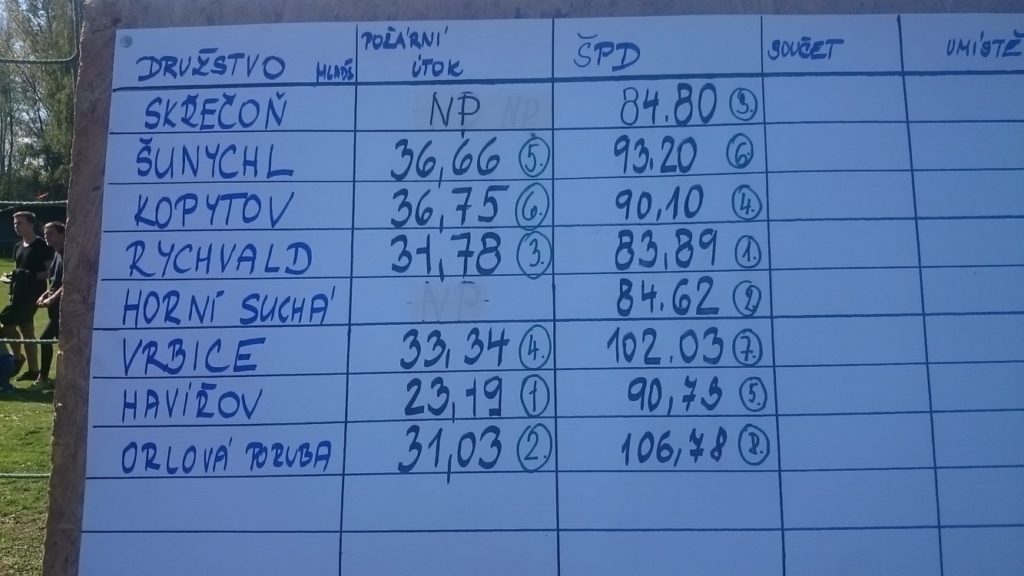 DRUŽSTVO MLADŠ POŽÁRNÍ ÚTOK ŠPD SOUČET UMÍSTĚ
SKŘEČOŇ NP 84.80 3.
ŠUNYCHL 36,66 5. 93.20 6
KOPYTOV 36,75 6. 90,10 4.
RYCHVALD 31,78 3. 83,89 1.
HORNÍ SUCHÁ NP 84.62 2
VRBICE 33,34 4. 102.03 7.
HAVÍŘOV 23,19 1 90,73 5.
ORLOVÁ PORUBA 31,03 2. 106,78 8.